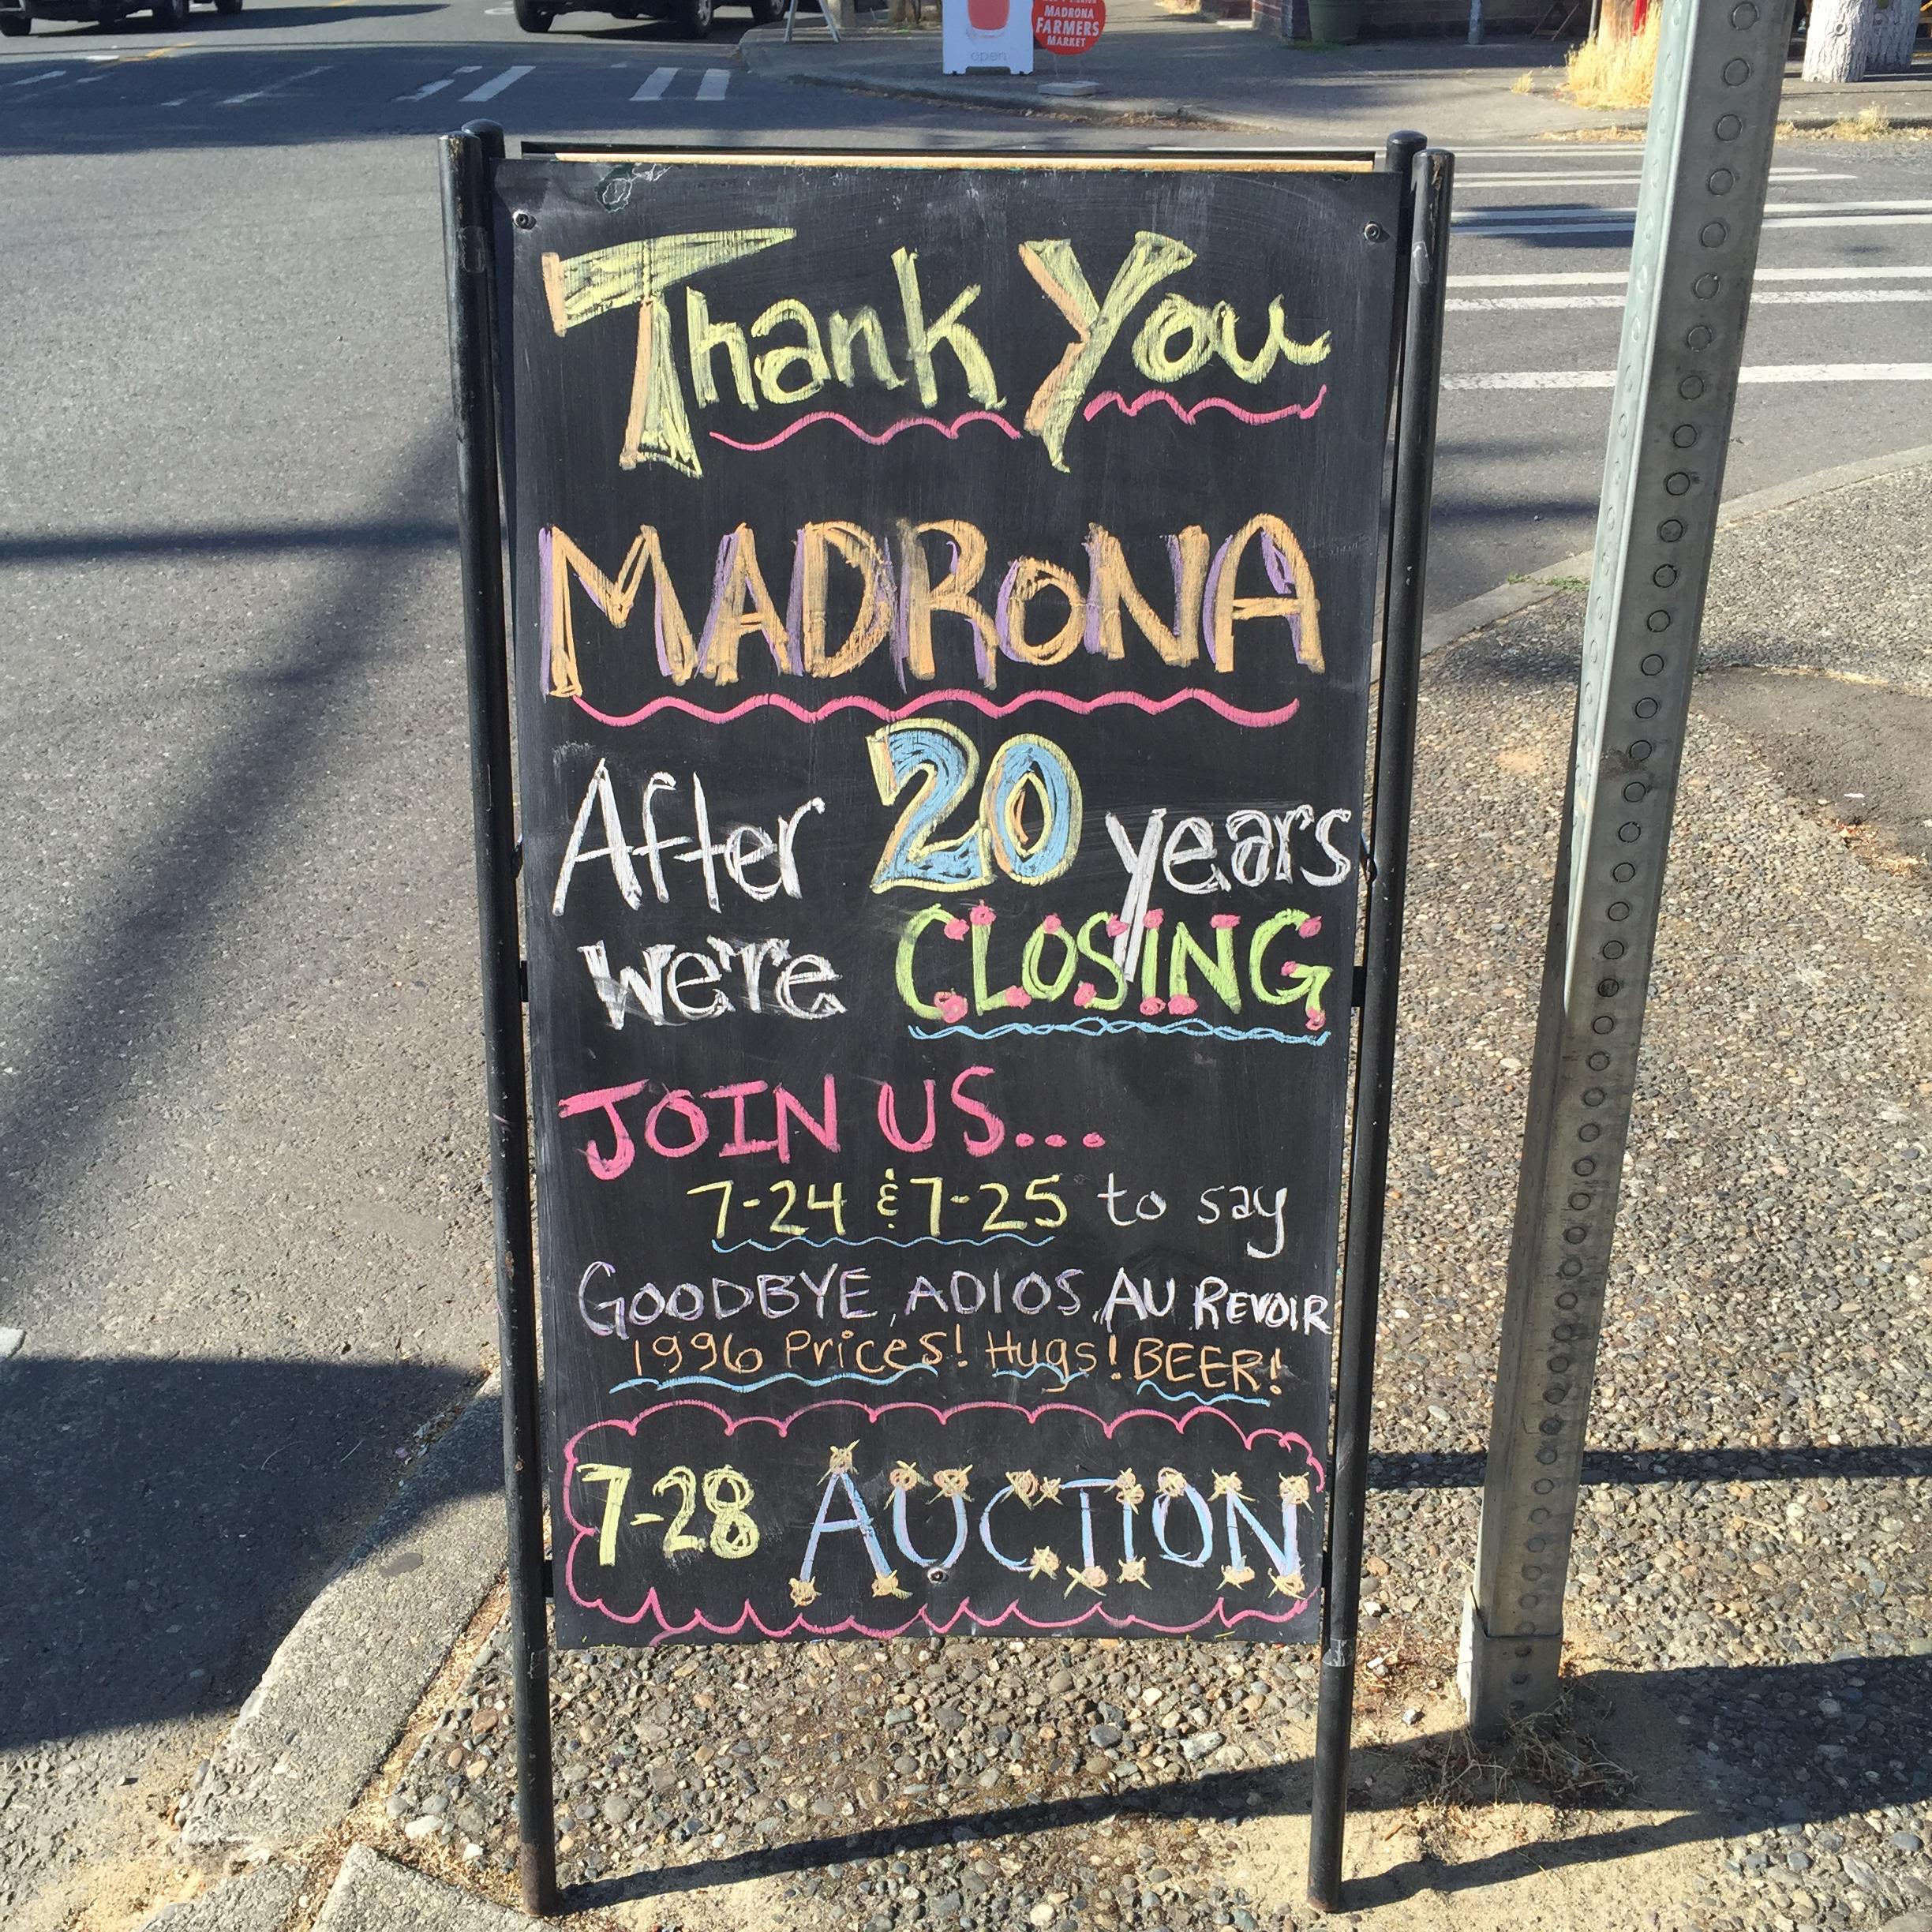 open
MADRONA
FARMERS
MARKET
Thank You
MADRONA
After 20 years
we're CLOSING
JOIN US...
7-24 & 7-25 to say
GOODBYE, ADIOS, AU REVOIR
1996 Prices! Hugs! BEER!
7-28 AUCTION